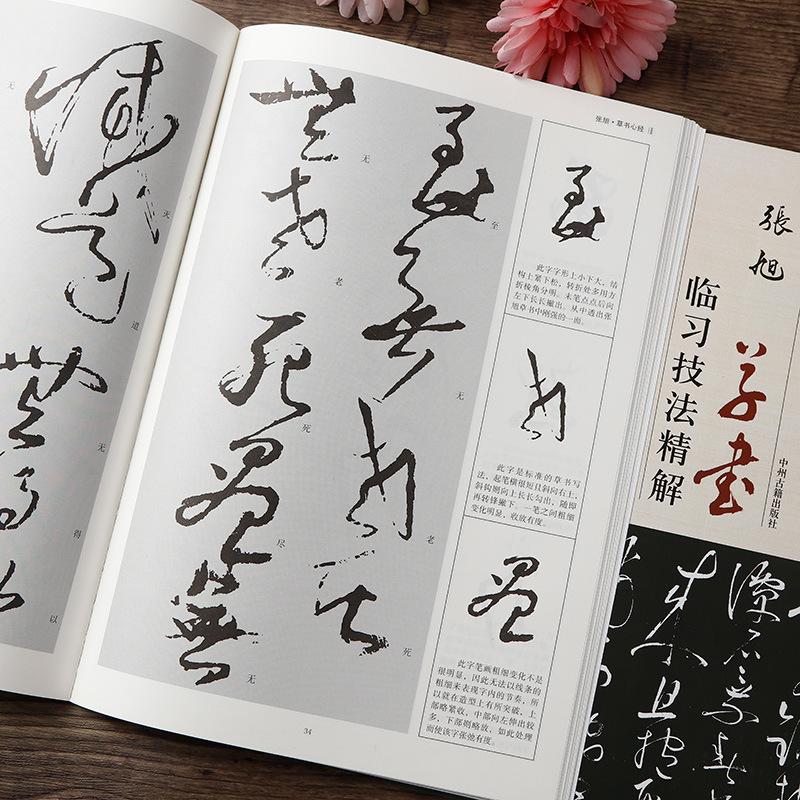 无
灭
道
无
得
以
张旭·草书心经
至
无
老
死
无
老
死
尽
无
此字字形上小下大，结
构上紧下松，转折处多用方
折棱角分明。末笔点点后向
左下长长撇出。从中透出张
旭草书中刚强的一面。
此字是标准的草书写
法，起笔横很短且斜向右上，
斜钩则向上长长勾出，随即
再转锋撇下。一笔之间粗细
变化明显，收放有度。
此字笔画粗细变化不是
很明显，因此无法以线条的
粗细来表现字内的节奏，所
以就在造型上有所突破，上
部略紧收，中部向左伸出较
多，下部则略放，如此处理
而使该字张弛有度。
34
張旭
草书
临习技法精解
中州古籍出版社